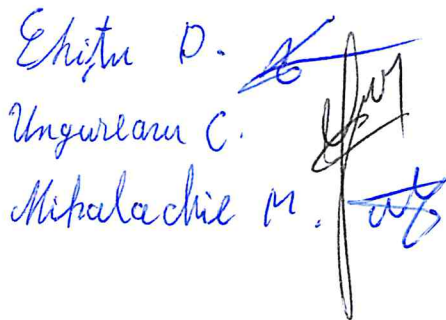 D.
Ungureanu C.
Mihalachie M.